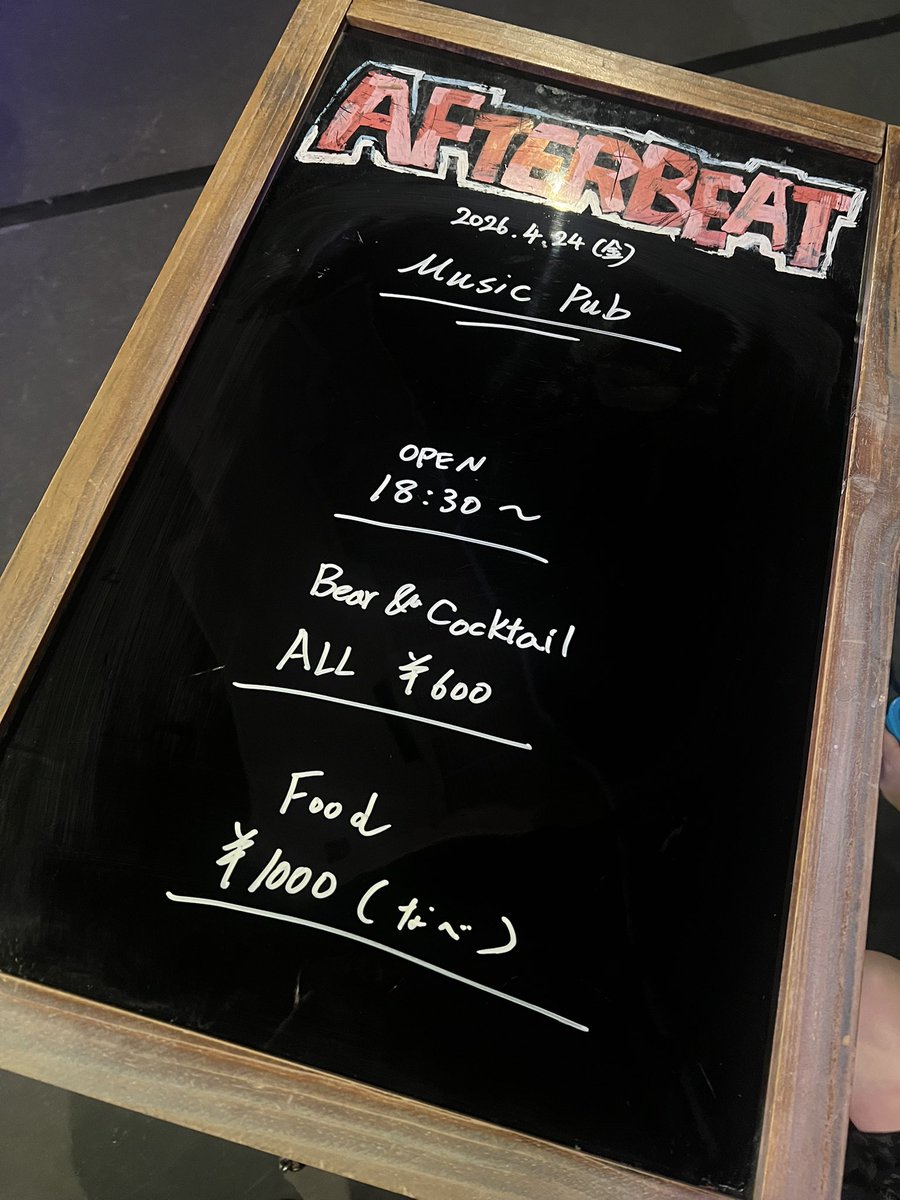 AFTERBEAT
2026.4.24(金)
Music Pub
OPEN
18:30～
Bear & Cocktail
ALL ¥600
Food
¥1000(なべ)